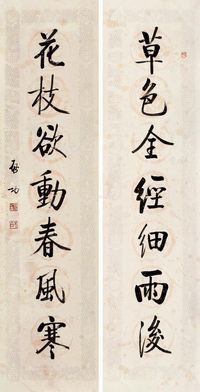 草色全經細雨後
花枝欲動春風寒
启功